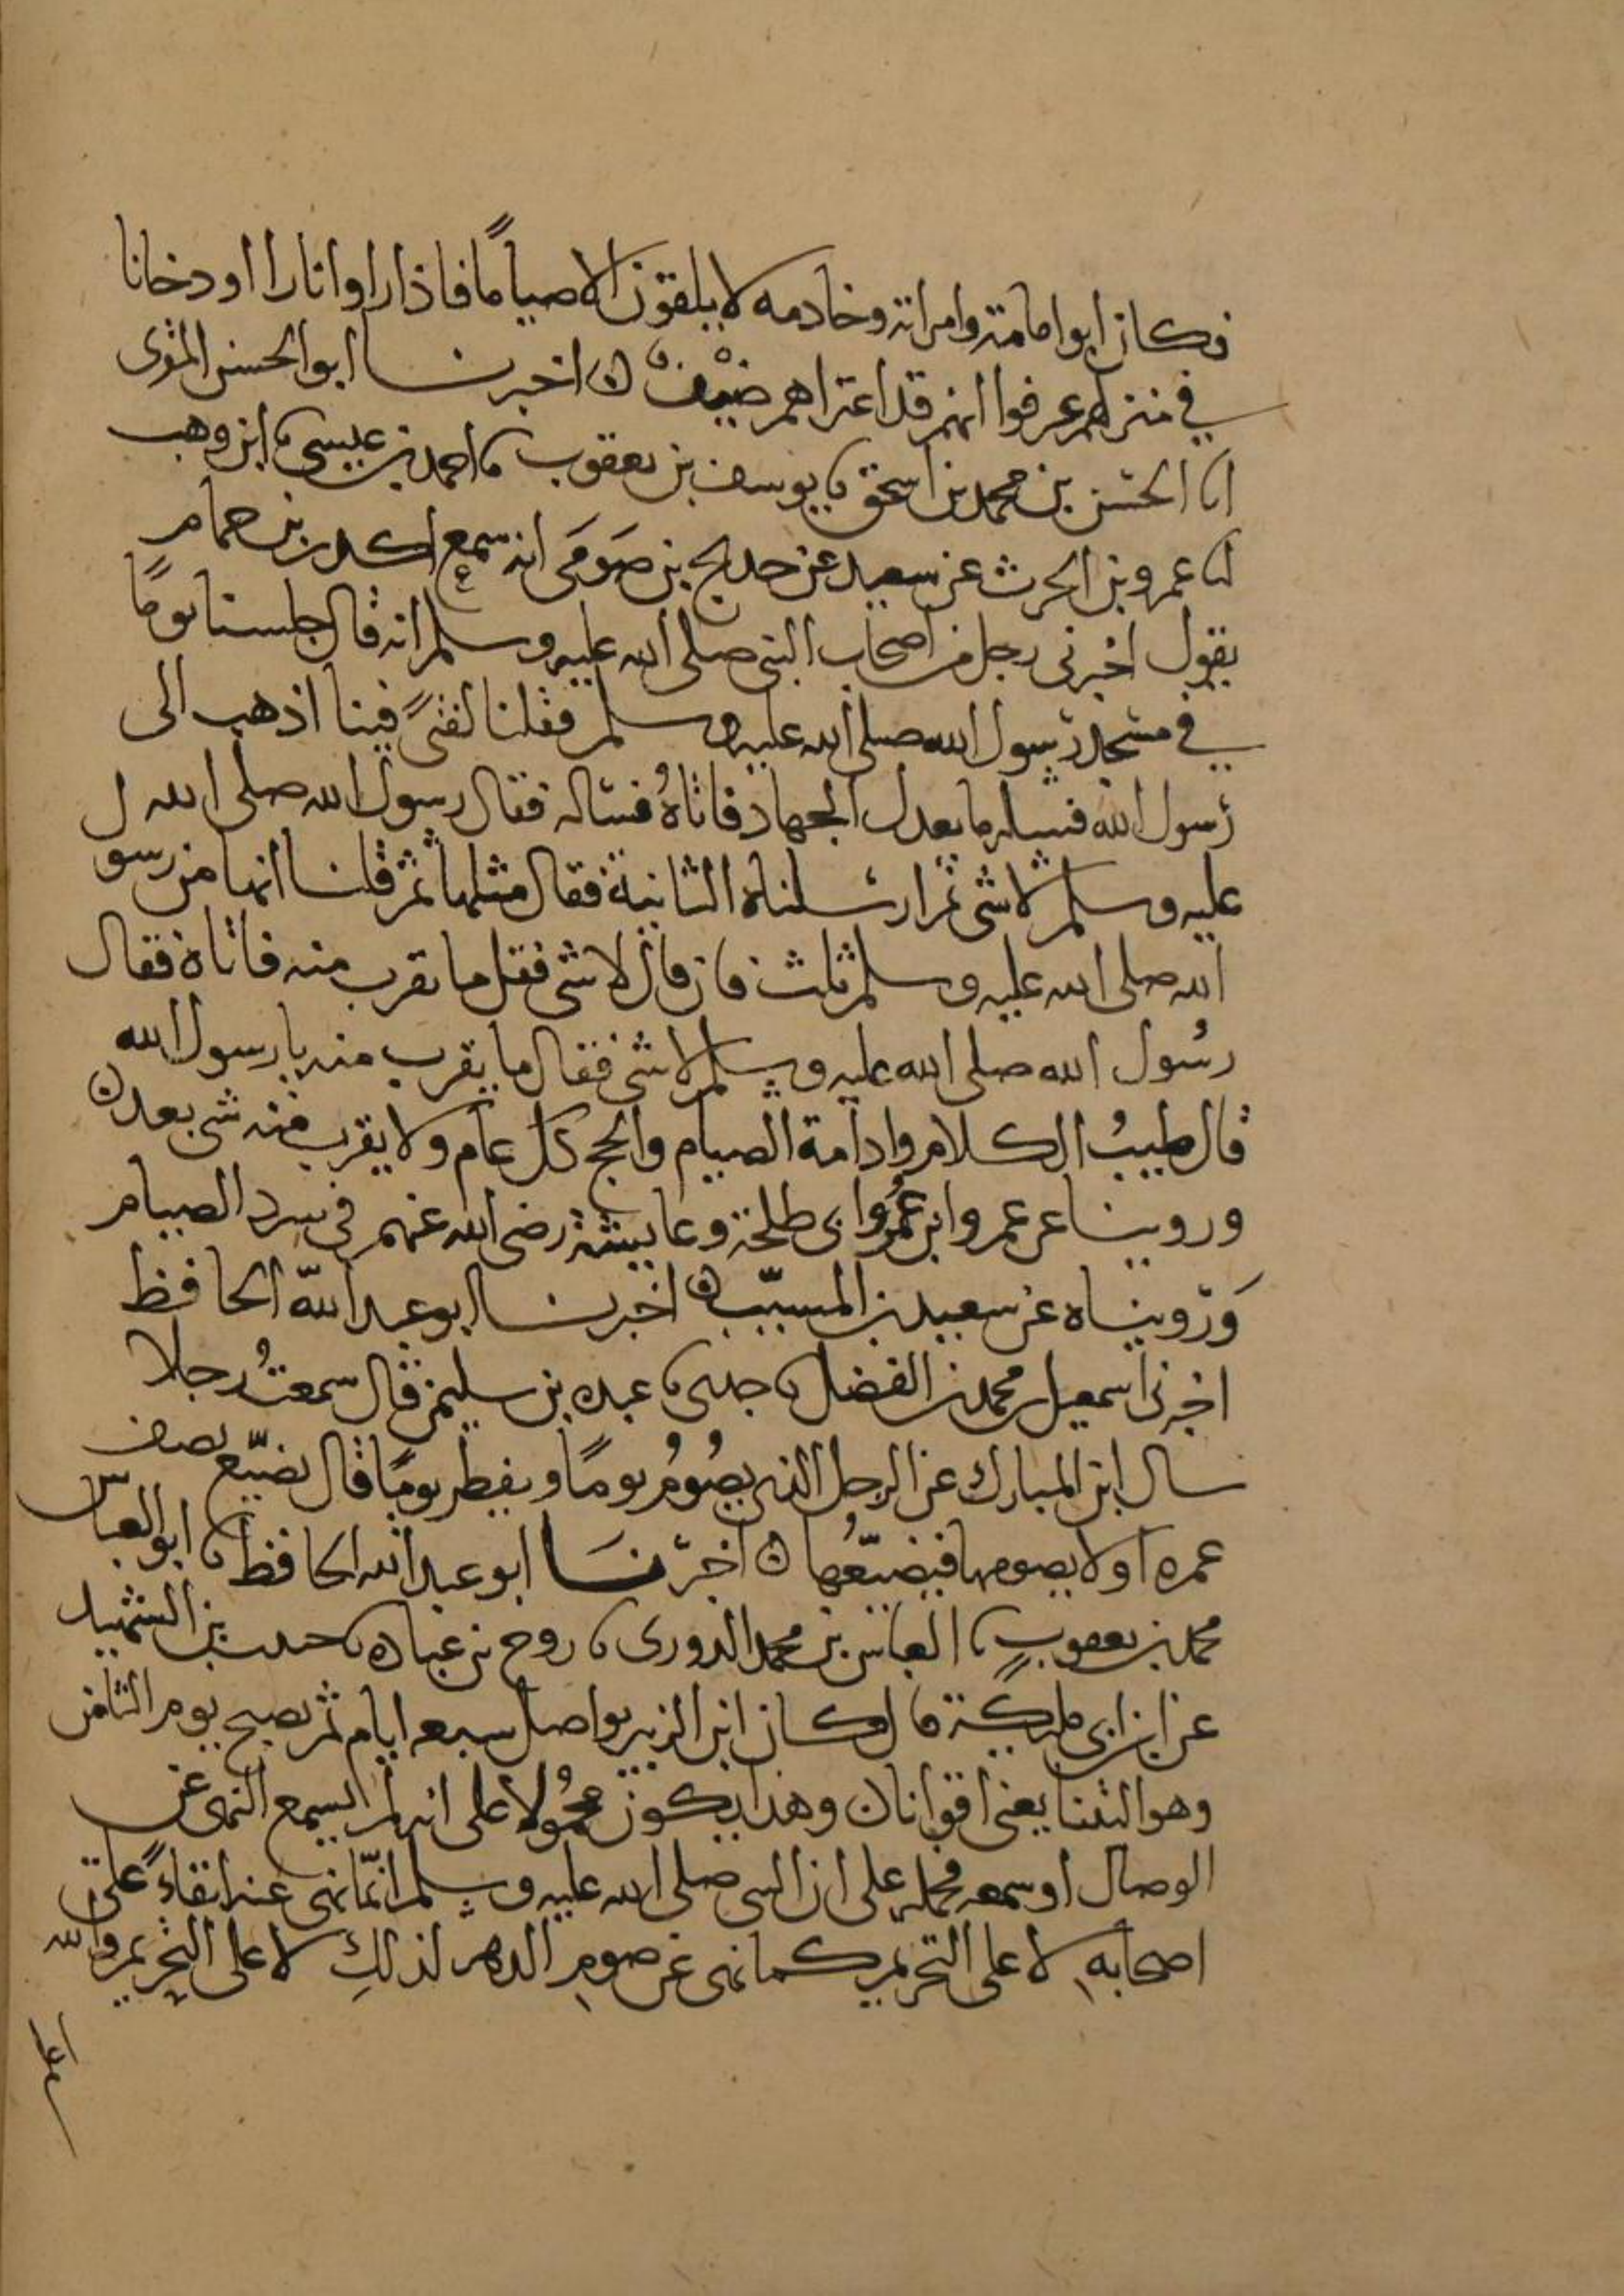 فكان ابوا مامة وامراته وخادمه لا يلقون الا صياما فاذا راوا نارا او دخانا
في منزلهم عرفوا انهم قد اعتراهم ضيف ه اخبرنا ابو الحسن المقرى
انا الحسن بن محمد بن اسحق نا يوسف بن يعقوب نا احمد بن عيسى نا ابن وهب
انا عمرو بن الحرث عن سعيد عن حديج بن صومى انه سمع اكدر بن حمام
يقول اخبرنى رجل من اصحاب النبى صلى الله عليه وسلم انه قال جلسنا يوما
في مسجد رسول الله صلى الله عليه وسلم فقلنا لفتىً فينا اذهب الى
رسول الله فسله ما يعدل الجهاد فاتاهُ فساله فقال رسول الله صلى الله
عليه وسلم لا شى ثم ارسلناه الثانية فقال مثلها ثم قلنا انها من رسول
الله صلى الله عليه وسلم ثلث فان قال لا شى فقل ما يقرب منه فاتاه فقال
رسُول الله صلى الله عليه وسلم لا شى فقال ما يقرب منه يا رسول الله
قال طيبُ الكلام وادامة الصيام والحج كل عام ولا يقرب منه شى بعد ه
وروينا عن عمر وابن عُمَر وابى طلحة وعايشة رضى الله عنهم فى سرد الصيام
وَرُويناه عن سعيد بن المسيّب ه اخبرنا ابو عبد الله الحافظ
اخبرنى اسمعيل بن محمد بن الفضل نا جدى نا عبده بن سليمن قال سمعتُ رجلا
سال ابن المبارك عن الرجل الذى يصُومُ يومًا ويفطر يومًا قال يضيّع نصف
عمره او لا يصومها فيضيّعُها ه اخبرنَا ابو عبد الله الحافظ نا ابو العباس
محمد بن يعقوب نا العباس بن محمد الدورى نا روح بن عباده نا حبيب بن الشهيد
عن ابن ابى مليكة قال كان ابن الزبير يواصل سبعه ايام ثم يصبح يوم الثامن
وهو اليثنا يعنى اقوانا ن وهذا يكون محمُولا على انه لم يسمع النهى عن
الوصال او سمعه فحمله على ان النبى صلى الله عليه وسلم انّما نهى عنه ابقاءً على
اصحابهِ لا على التحريم كما نهى عن صومِ الدهر لذلكِ لا على التحريم والله
اعلم